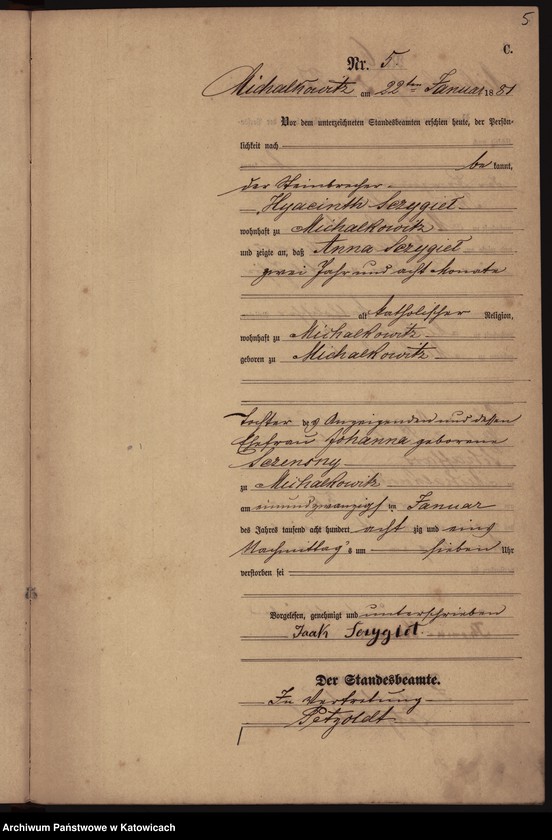 5
C.
Nr. 5
Michalkowitz am 22ten Januar 1881
Vor dem unterzeichneten Standesbeamten erschien heute, der Persön-
lichkeit nach
be kannt,
der Steinbrecher
Hyacinth Sczygiel
wohnhaft zu Michalkowitz
und zeigte an, daß Anna Sczygiel
zwei Jahr und acht Monate
alt katholischer Religion,
wohnhaft zu Michalkowitz
geboren zu Michalkowitz
Tochter des Anzeigenden und dessen
Ehefrau Johanna geborene
zu Michalkowitz
am einundzwanzigst en Januar
des Jahres tausend acht hundert acht zig und eins
Nachmittag's um sieben Uhr
verstorben sei
Vorgelesen, genehmigt und unterschrieben
Jaak
Der Standesbeamte.
In Vertretung
Petzoldt
Archiwum Państwowe w Katowicach